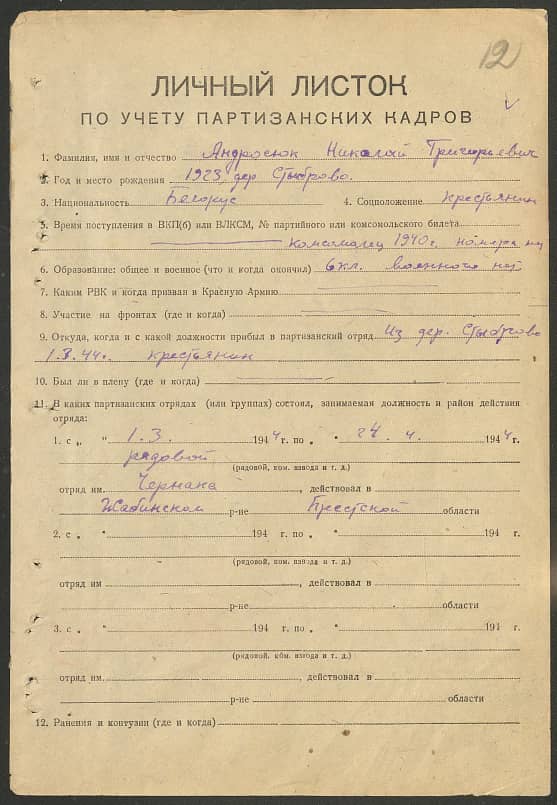 12
ЛИЧНЫЙ ЛИСТОК
ПО УЧЕТУ ПАРТИЗАНСКИХ КАДРОВ
1. Фамилия, имя и отчество Андросюк Николай Григорьевич
2. Год и место рождения 1923, дер. Стыброво.
3. Национальность Белорус 4. Соцположение крестьянин
5. Время поступления в ВКП(б) или ВЛКСМ, № партийного или комсомольского билета
комсомолец 1940 г. номера нет
6. Образование: общее и военное (что и когда окончил) 6 кл. военного нет
7. Каким РВК и когда призван в Красную Армию
8. Участие на фронтах (где и когда)
9. Откуда, когда и с какой должности прибыл в партизанский отряд Из дер. Стыброво
1.3.44 г. крестьянин
10. Был ли в плену (где и когда)
11. В каких партизанских отрядах (или группах) состоял, занимаемая должность и район действия
отряда:
1. с „ “ 1.3. 1944 г. по „ “ 24.4. 1944 г.
рядовой
(рядовой, ком. взвода и т. д.)
отряд им. Чернака, действовал в
Жабинском р-не Брестской области
2. с „ “ 194 г. по „ “ 194 г.
(рядовой, ком. взвода и т. д.)
отряд им , действовал в
р-не области
3. с „ “ 194 г. по „ “ 194 г.
(рядовой, ком. взвода и т. д.)
отряд им. , действовал в
р-не области
12. Ранения и контузии (где и когда)